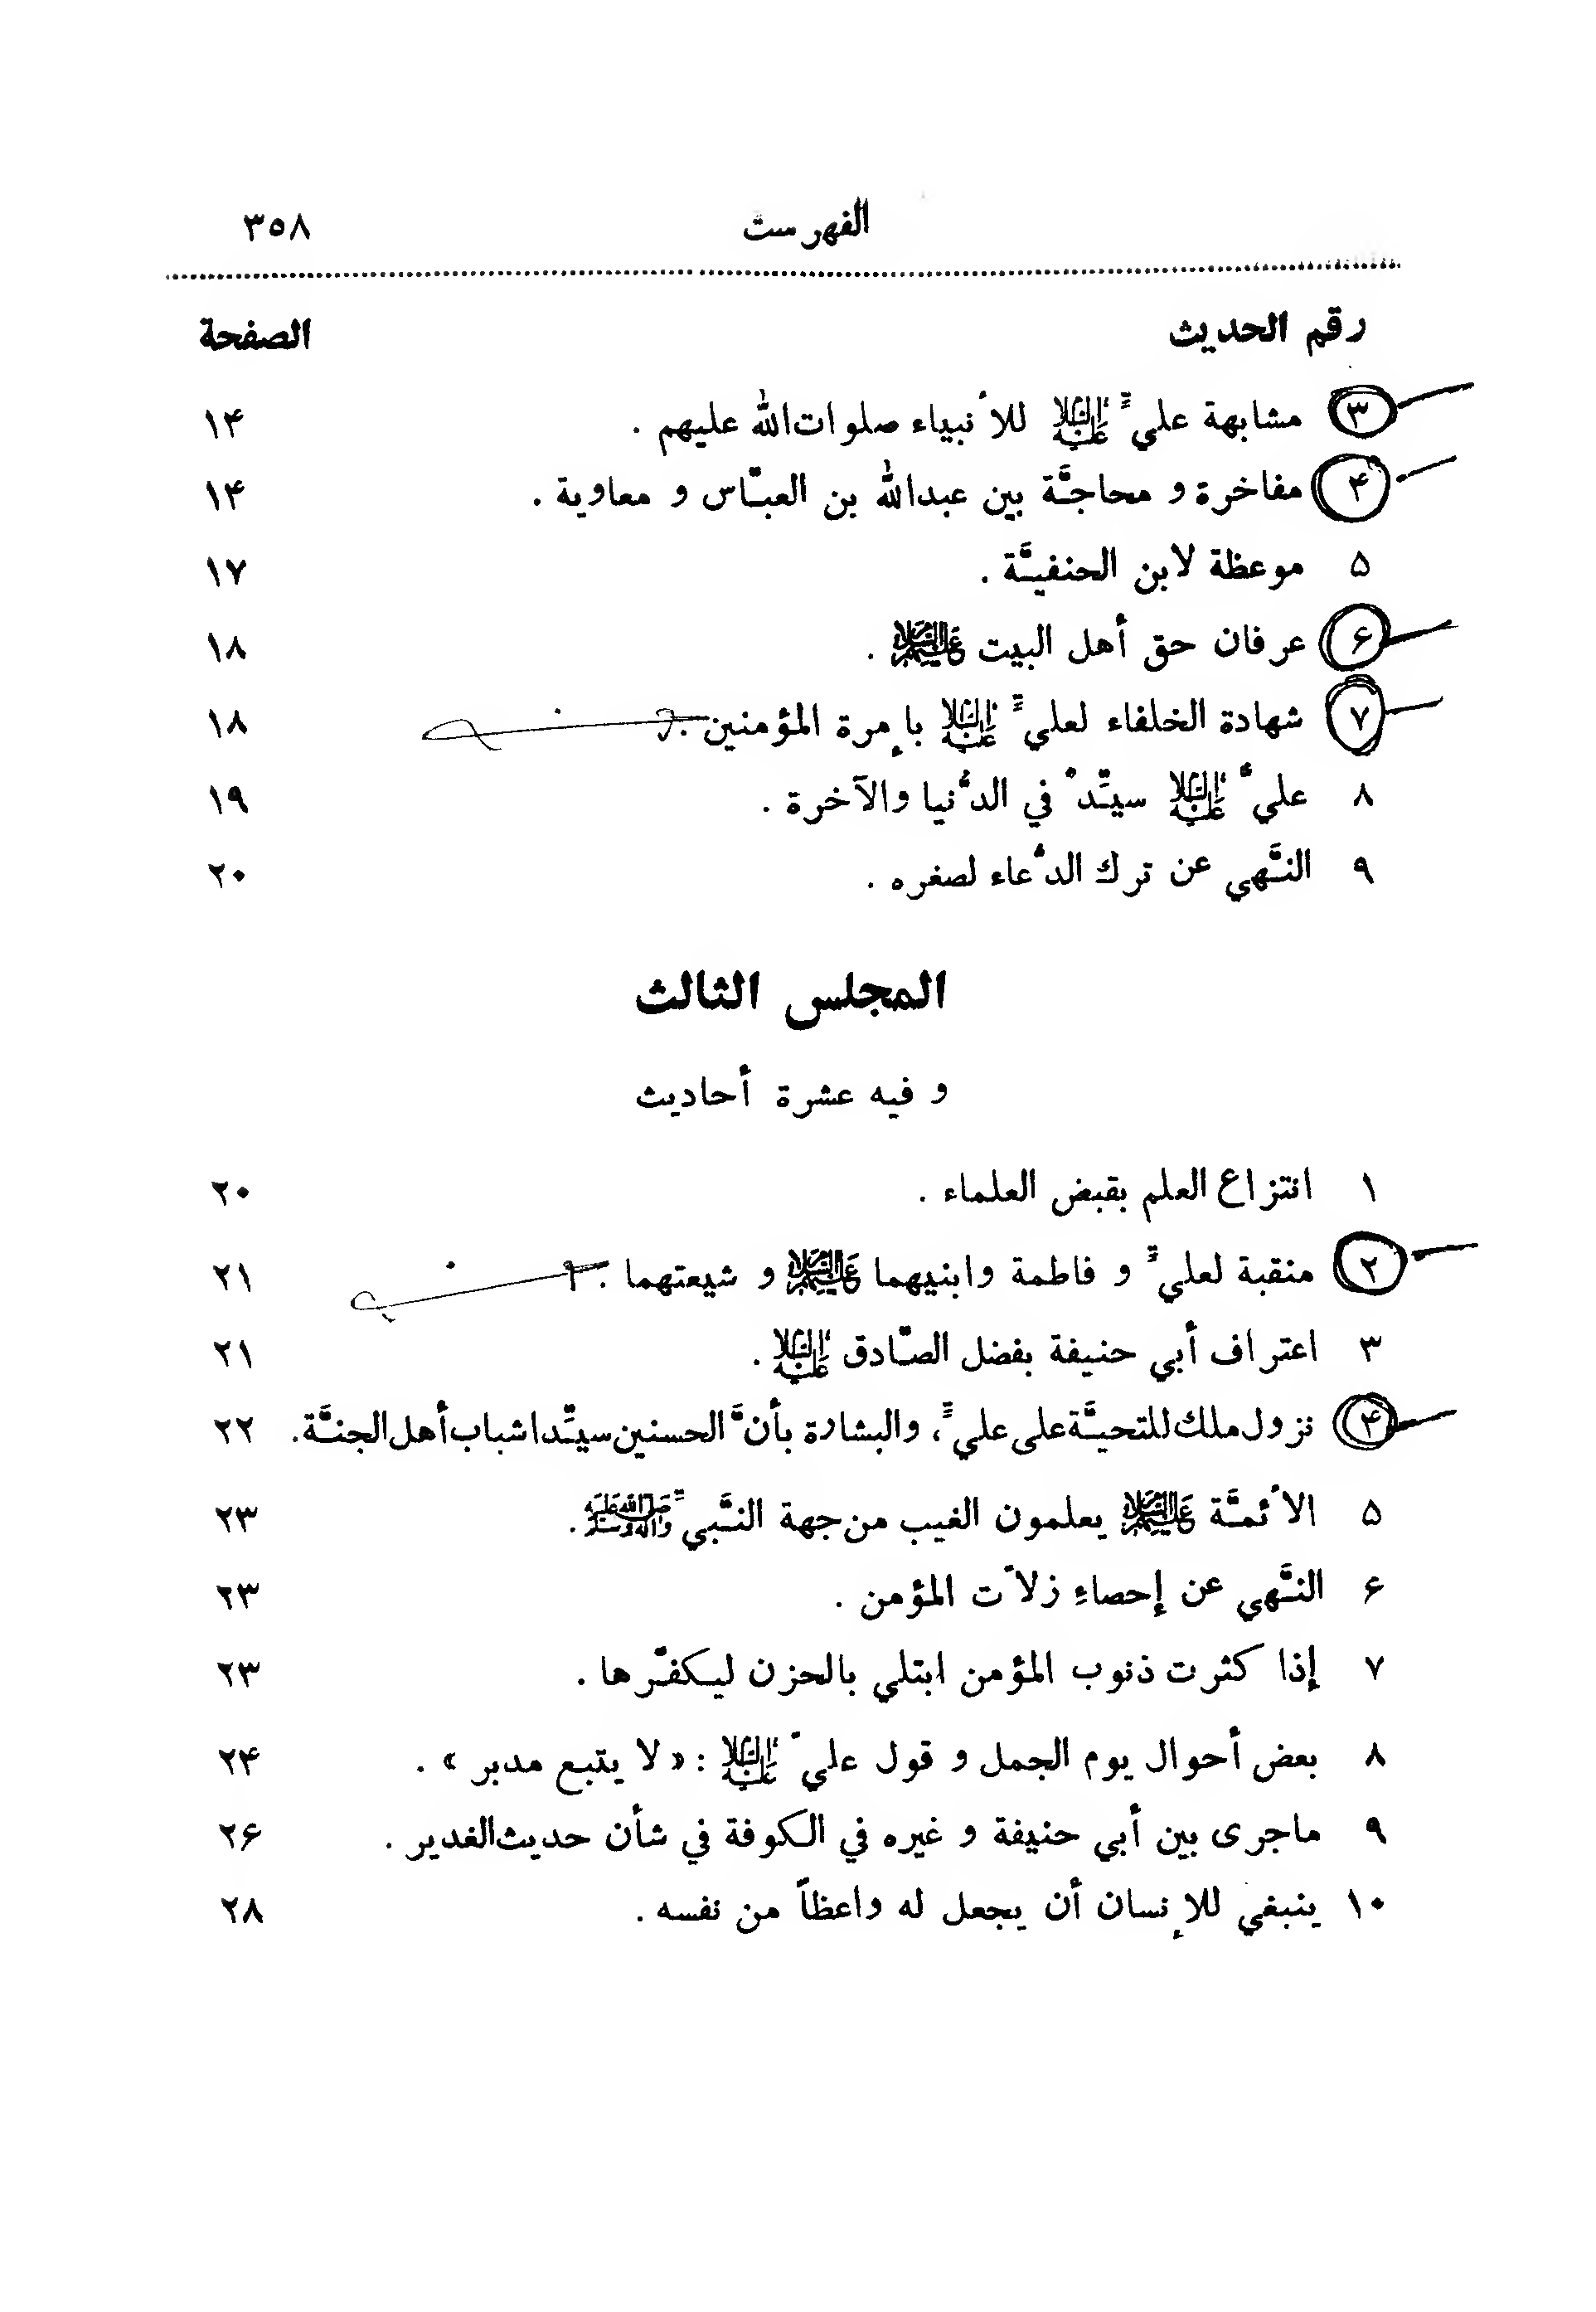 الفهرست ٣٥٨
رقم الحديث الصفحة
٣ مشابهة عليٍّ عليه السلام للأنبياء صلوات الله عليهم . ١۴
۴ مفاخرة و محاجَّة بين عبدالله بن العبّاس و معاوية . ١۴
۵ موعظة لابن الحنفيَّة . ١٧
۶ عرفان حق أهل البيت عليهم السلام . ١٨
٧ شهادة الخلفاء لعليٍّ عليه السلام بإمرة المؤمنين . ١٨
٨ عليٌّ عليه السلام سيّدٌ في الدُّنيا والآخرة . ١٩
٩ النَّهي عن ترك الدُّعاء لصغره . ٢٠
المجلس الثالث
و فيه عشرة أحاديث
١ انتزاع العلم بقبض العلماء . ٢٠
٢ منقبة لعليٍّ و فاطمة وابنيهما عليهم السلام و شيعتهما . ٢١
٣ اعتراف أبي حنيفة بفضل الصّادق عليه السلام . ٢١
۴ نزول ملك للتحيَّة على عليٍّ، والبشارة بأنَّ الحسنين سيّدا شباب أهل الجنَّة. ٢٢
۵ الأئمَّة عليهم السلام يعلمون الغيب من جهة النَّبيِّ صلى الله عليه وآله وسلم . ٢٣
۶ النَّهي عن إحصاءِ زلاّت المؤمن . ٢٣
٧ إذا كثرت ذنوب المؤمن ابتلي بالحزن ليكفّرها . ٢٣
٨ بعض أحوال يوم الجمل و قول عليّ عليه السلام : « لا يتبع مدبر » . ٢۴
٩ ماجرى بين أبي حنيفة و غيره في الكوفة في شأن حديث الغدير . ٢۶
١٠ ينبغي للإنسان أن يجعل له واعظاً من نفسه . ٢٨